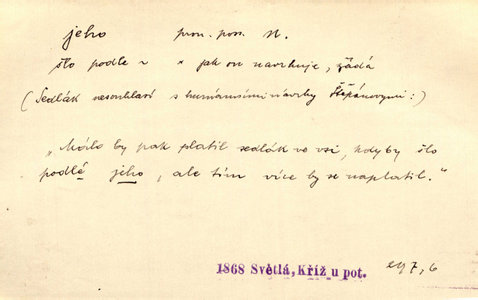 jeho pron. poss. N.
šlo podle ~ × jak on navrhuje, žádá
(Sedlák nesouhlasí s humánními návrhy Štěpánovými:)
„Málo by pak platil sedlák ve vsi, kdyby šlo
podlé jeho, ale tím více by se naplatil.“
1868 Světlá, Kříž u pot. 197,6